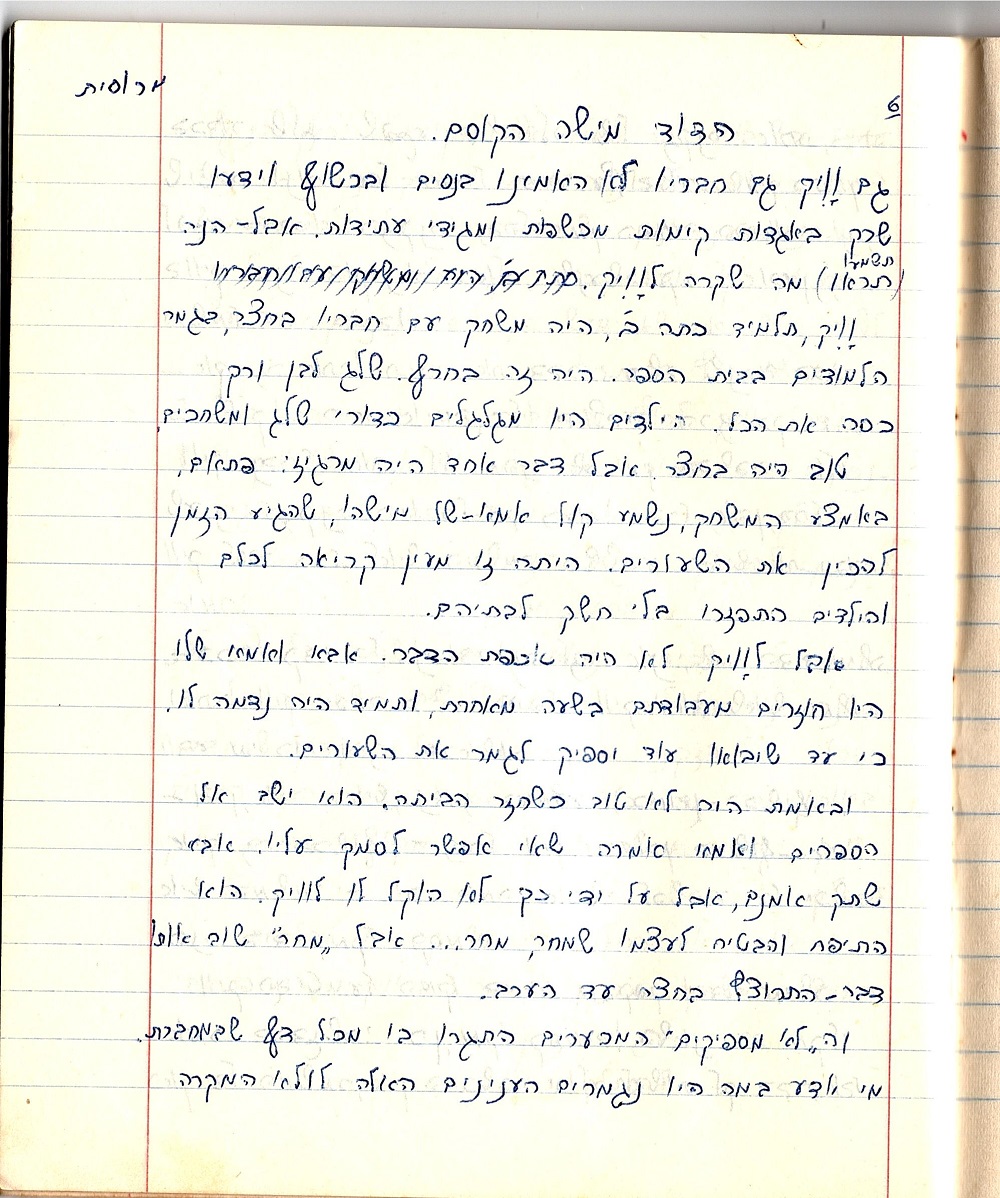 מרוסית
6
הדודי מישה הקוסם.
גם וָוִיק גם חבריו לא האמינו בנסים ובכשוף וידעו
שרק באגדות קימות מכשפות ומגידי עתידות. אבל - הנה
תשמעו
(תראו) מה שקרה לוָוִיק.
וָוִיק, תלמיד כתה ב', היה משחק עם חבריו בחצר, כגמר
הלמודים בבית הספר. היה זה בחרף. שלג לבן ורק
כסה את הכל. הילדים היו מגלגלים כדורי שלג ומשחקים
טוב היה בחצר. אבל דבר אחד היה מרגיז: פתאם,
באמצע המשחק, נשמע קול אמא-של מישהו, שהגיע הזמן
להכין את השעורים. היתה זו מעין קריאה לכלם
והילדים התפזרו בלי חשק לבתיהם.
אבל לוָוִיק לא היה אכפת הדבר. אבא ואמא שלו
היו חוזרים מעבודתם בשעה מאחרת, ותמיד היה נדמה לו,
כי עד שיבואו עוד יספיק לגמר את השעורים.
ובאמת היה לא טוב כשחזר הביתה. הוא ישב אל
הספרים ואמא אמרה שאי אפשר לסמך עליו. אבא
שתק אומנם, אבל על ידי כך לא הוקל לו לוויק. הוא
התיפח והבטיח לעצמו שמחר, מחר... אבל "מחר" שוב אותו
דבר - התרוצץ בחצר עד הערב.
וה"לא מספיקים" המכערים התגרו בו מכל דף שבמחברת.
מי יודע במה היו נגמרים הענינים האלה לולא המקרה